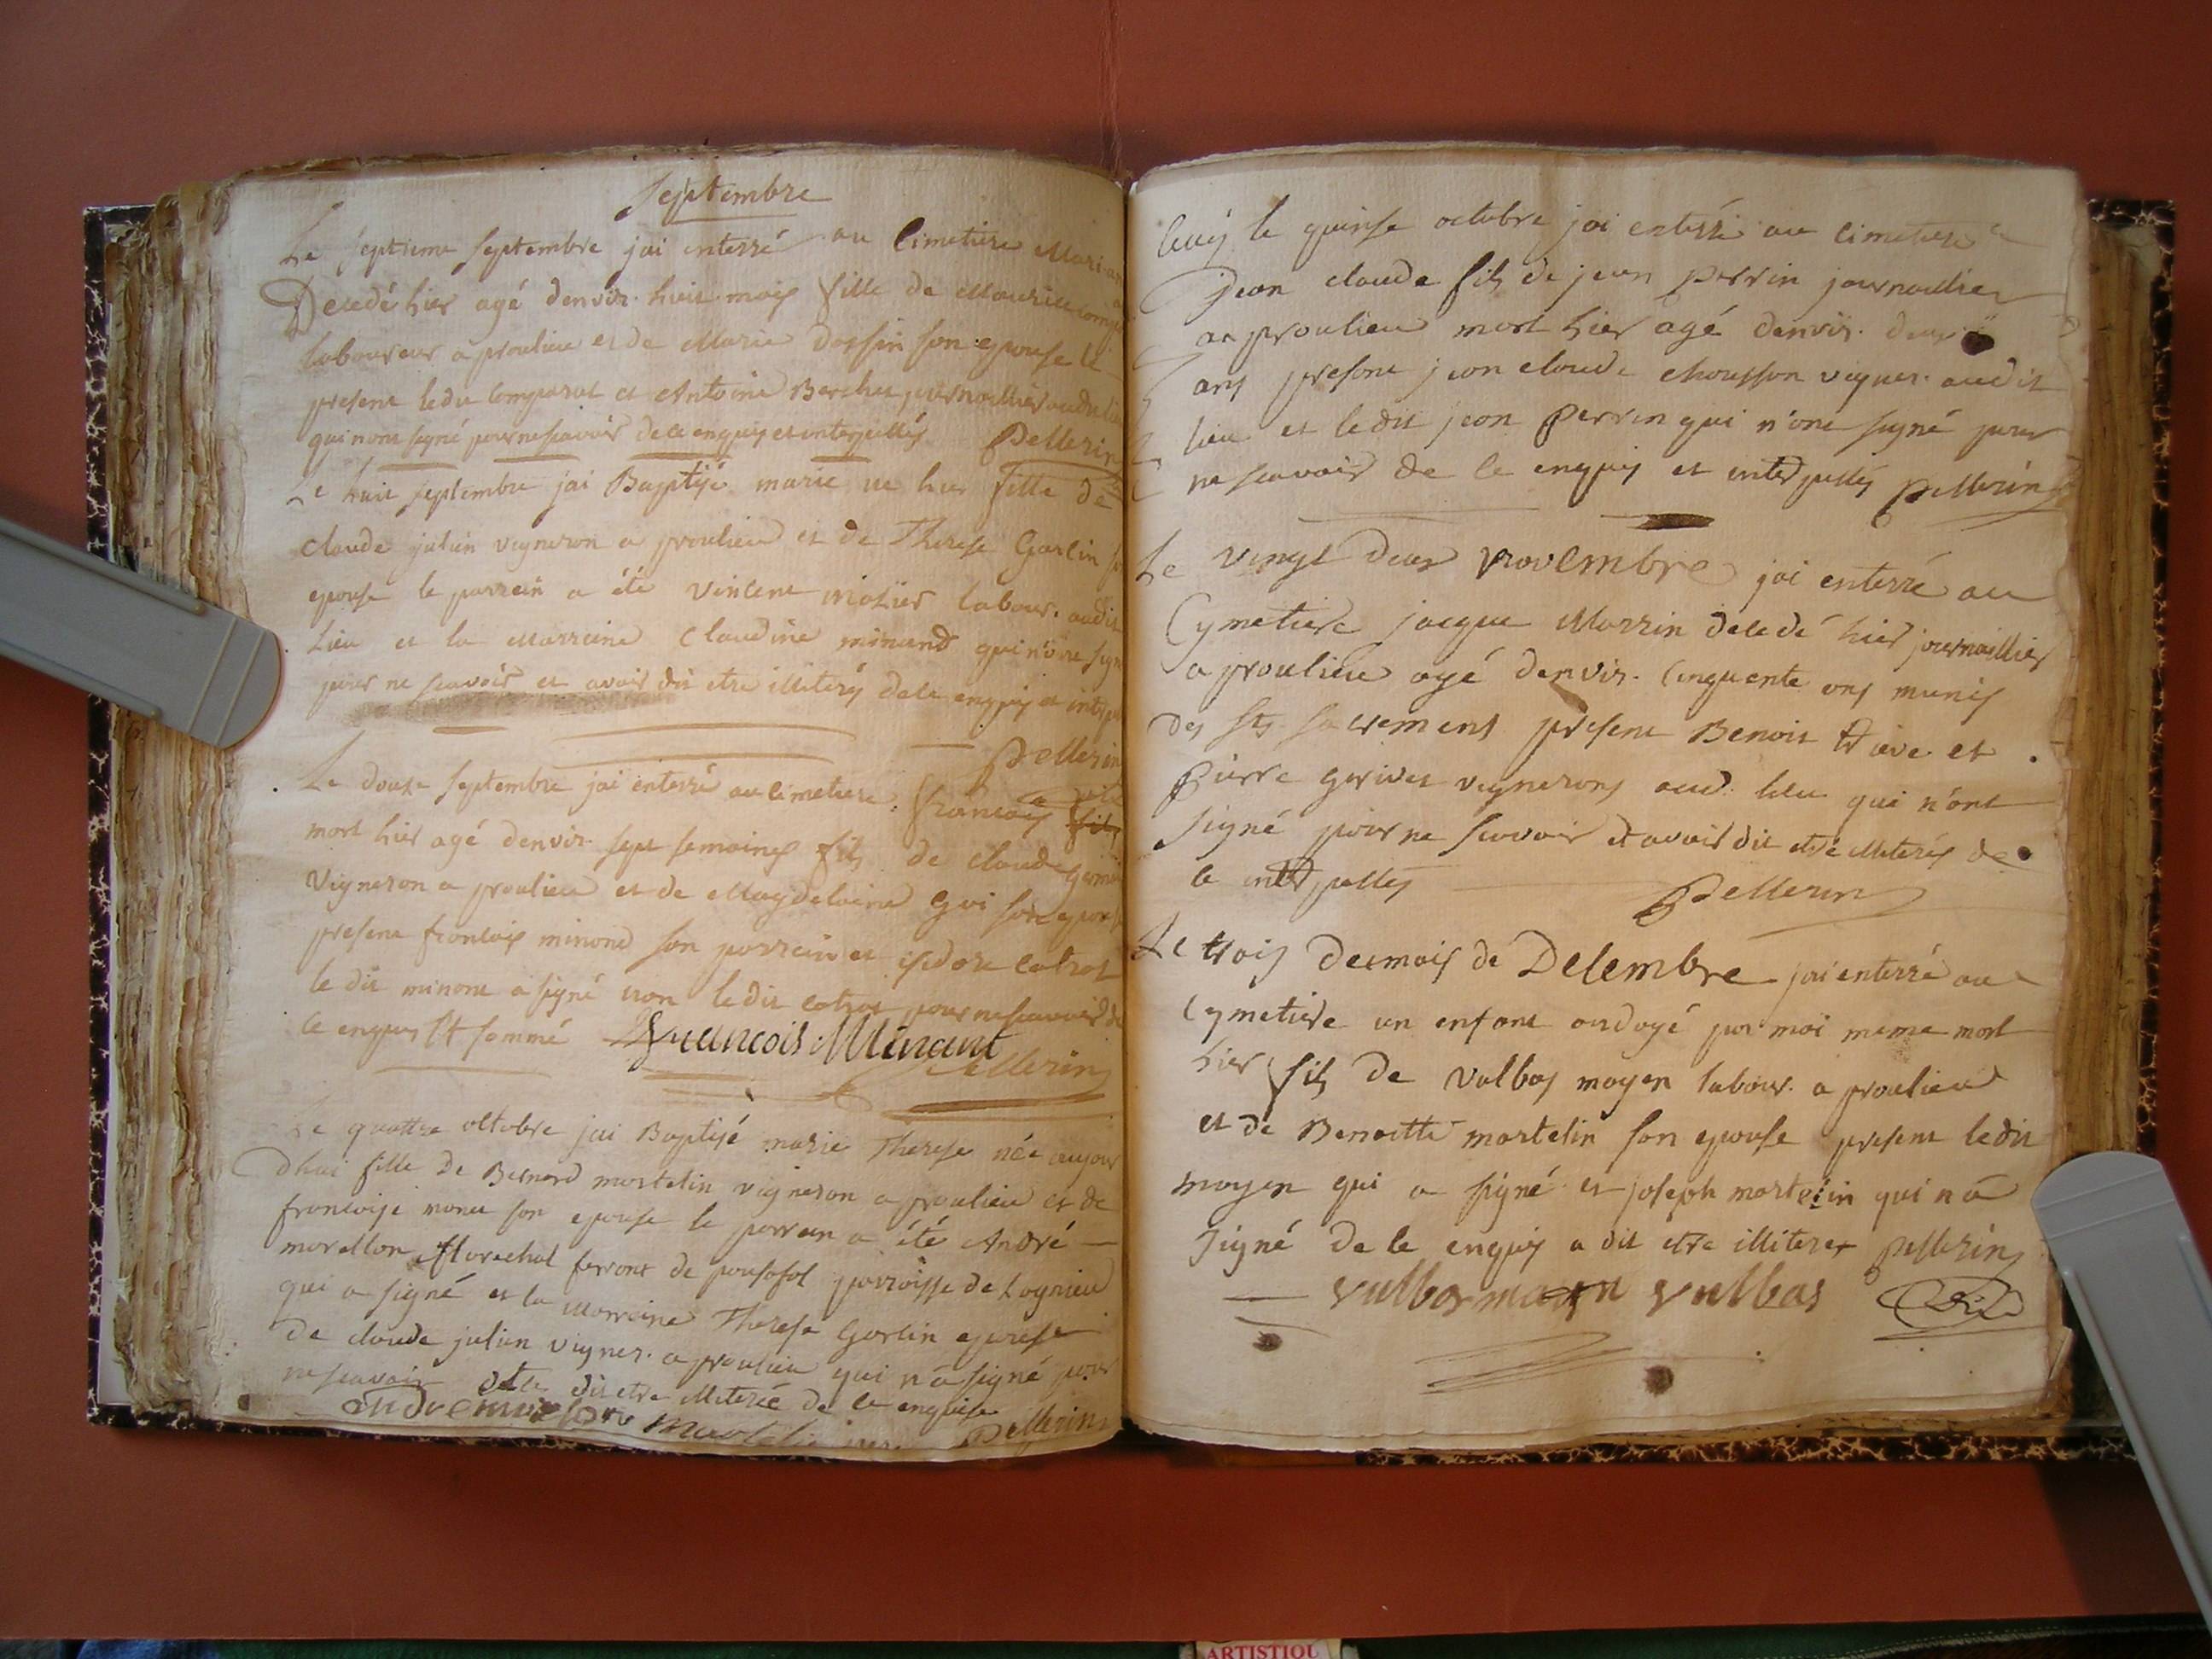 Septembre
Le septieme septembre jai enterré au Cimetiere
Decedé hier agé denvir. huit mois fille de Maurice
laboureur a proulieu et de Marie Dossin son epouse le
present ledit comparut et Antoine Berchet journallier audit lieu
qui nont signé pour ne scavoir de ce enquis et interpellés Pellerin
Le huit septembre jai Baptisé marie ne hier fille de
claude julien vigneron a proulieu et de Therese Garlin
epouse le parrein a été Vincent labour. audit
lieu et la Marreine Claudine minand qui n'ont
pour ne scavoir et avoir dit etre illiterés de ce enquis et
Pellerin
Le douse septembre jai enterré au cimetiere francois
mort hier agé denvir. sept semaines fils de claude
vigneron a proulieu et de Magdelaine Gui son epouse
present francois minand son parrein et isidore cotrat
le dit minant a signé non le dit cotrat pour ne scavoir de
ce enquis et sommé francois Minant
Pellerin
Le quattre octobre jai Baptisé marie Therese née aujour
dhui fille De Bernard martelin vigneron a proulieu et de
francoise son epouse le parrein a été André
morellon Marechal ferrant de parroisse de Lagnieu
qui a signé et la Marreine Therese Garlin epouse
de claude julien vigner. a proulieu qui n'a signé pour
ne scavoir dit etre illiterée de ce enquise
andre Martelin pere Pellerin
le quinse octobre jai enterré au cimetiere
jean claude fils de jean perrin journallier
a proulieu mort hier agé denvir. deux
ans present jean claude chousson vigner. audit
lieu et ledit jean perrin qui n'ont signé pour
ne scavoir de ce enquis et interpellés Pellerin
Le vingt deux novembre jai enterré au
Cymetiere jacque Marrin decedé hier journallier
a proulieu agé denvir. cinquente ans munis
des sts. sacrement present Benoit trieve et
pierre gerivet vignerons aud. lieu qui n'ont
signé pour ne scavoir et avoir dit etre illiterés de
ce interpellés Pellerin
Le trois du mois de Decembre jai enterré au
Cymetiere un enfant ondoyé par moi meme mort
hier fils de Valbas moyen labour. a proulieu
et de Benoitte martelin son epouse present ledit
moyen qui a signé et joseph martelin qui n'a
signé de ce enquis a dit etre illiteret Pellerin
vulbas